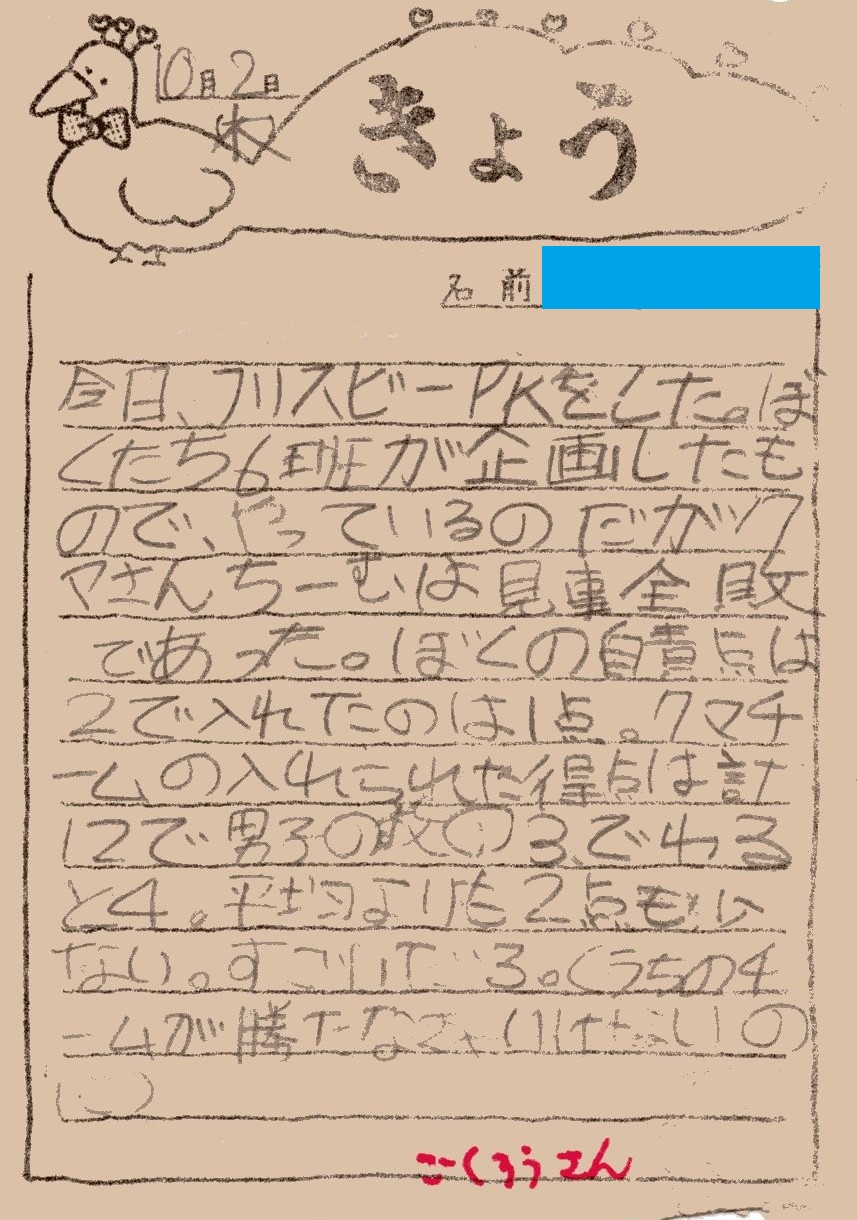 10月2日
木
きょう
名前
今日、フリスビーPKをした。ぼ
くたち6班が企画したも
ので、やっているのだがク
マさんちーむは見事全敗
であった。ぼくの自責点は
2で入れたのは1点。クマチ
ームの入れられた得点は計
12で男子の数の3でわる
と4。平均よりも2点も少
ない。すごいでござる。(うちのチ
ームが勝てなきゃいけないの
に)
ごくろうさん